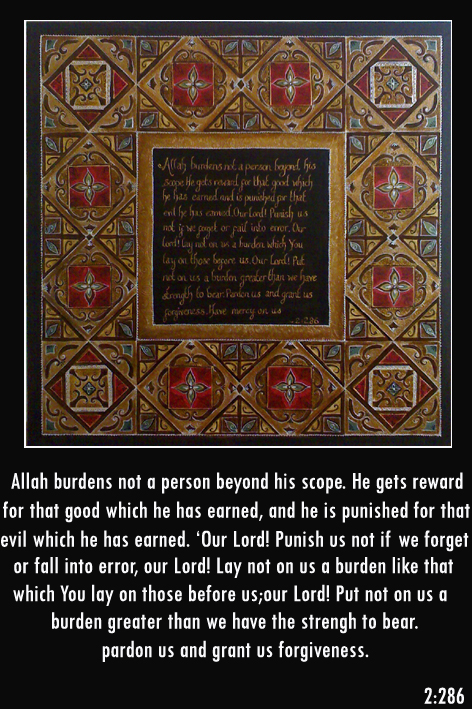 Allah burdens not a person beyond his
scope. He gets reward for that good which
he has earned and is punished for that
evil he has earned. Our Lord! Punish us
not if we forget or fall into error. Our
Lord! Lay not on us a burden which You
lay on those before us. Our Lord! Put
not on us a burden greater than we have
strength to bear. Pardon us and grant us
forgiveness. Have mercy on us
-2-286
Allah burdens not a person beyond his scope. He gets reward
for that good which he has earned, and he is punished for that
evil which he has earned. ‘Our Lord! Punish us not if we forget
or fall into error, our Lord! Lay not on us a burden like that
which You lay on those before us;our Lord! Put not on us a
burden greater than we have the strengh to bear.
pardon us and grant us forgiveness.
2:286